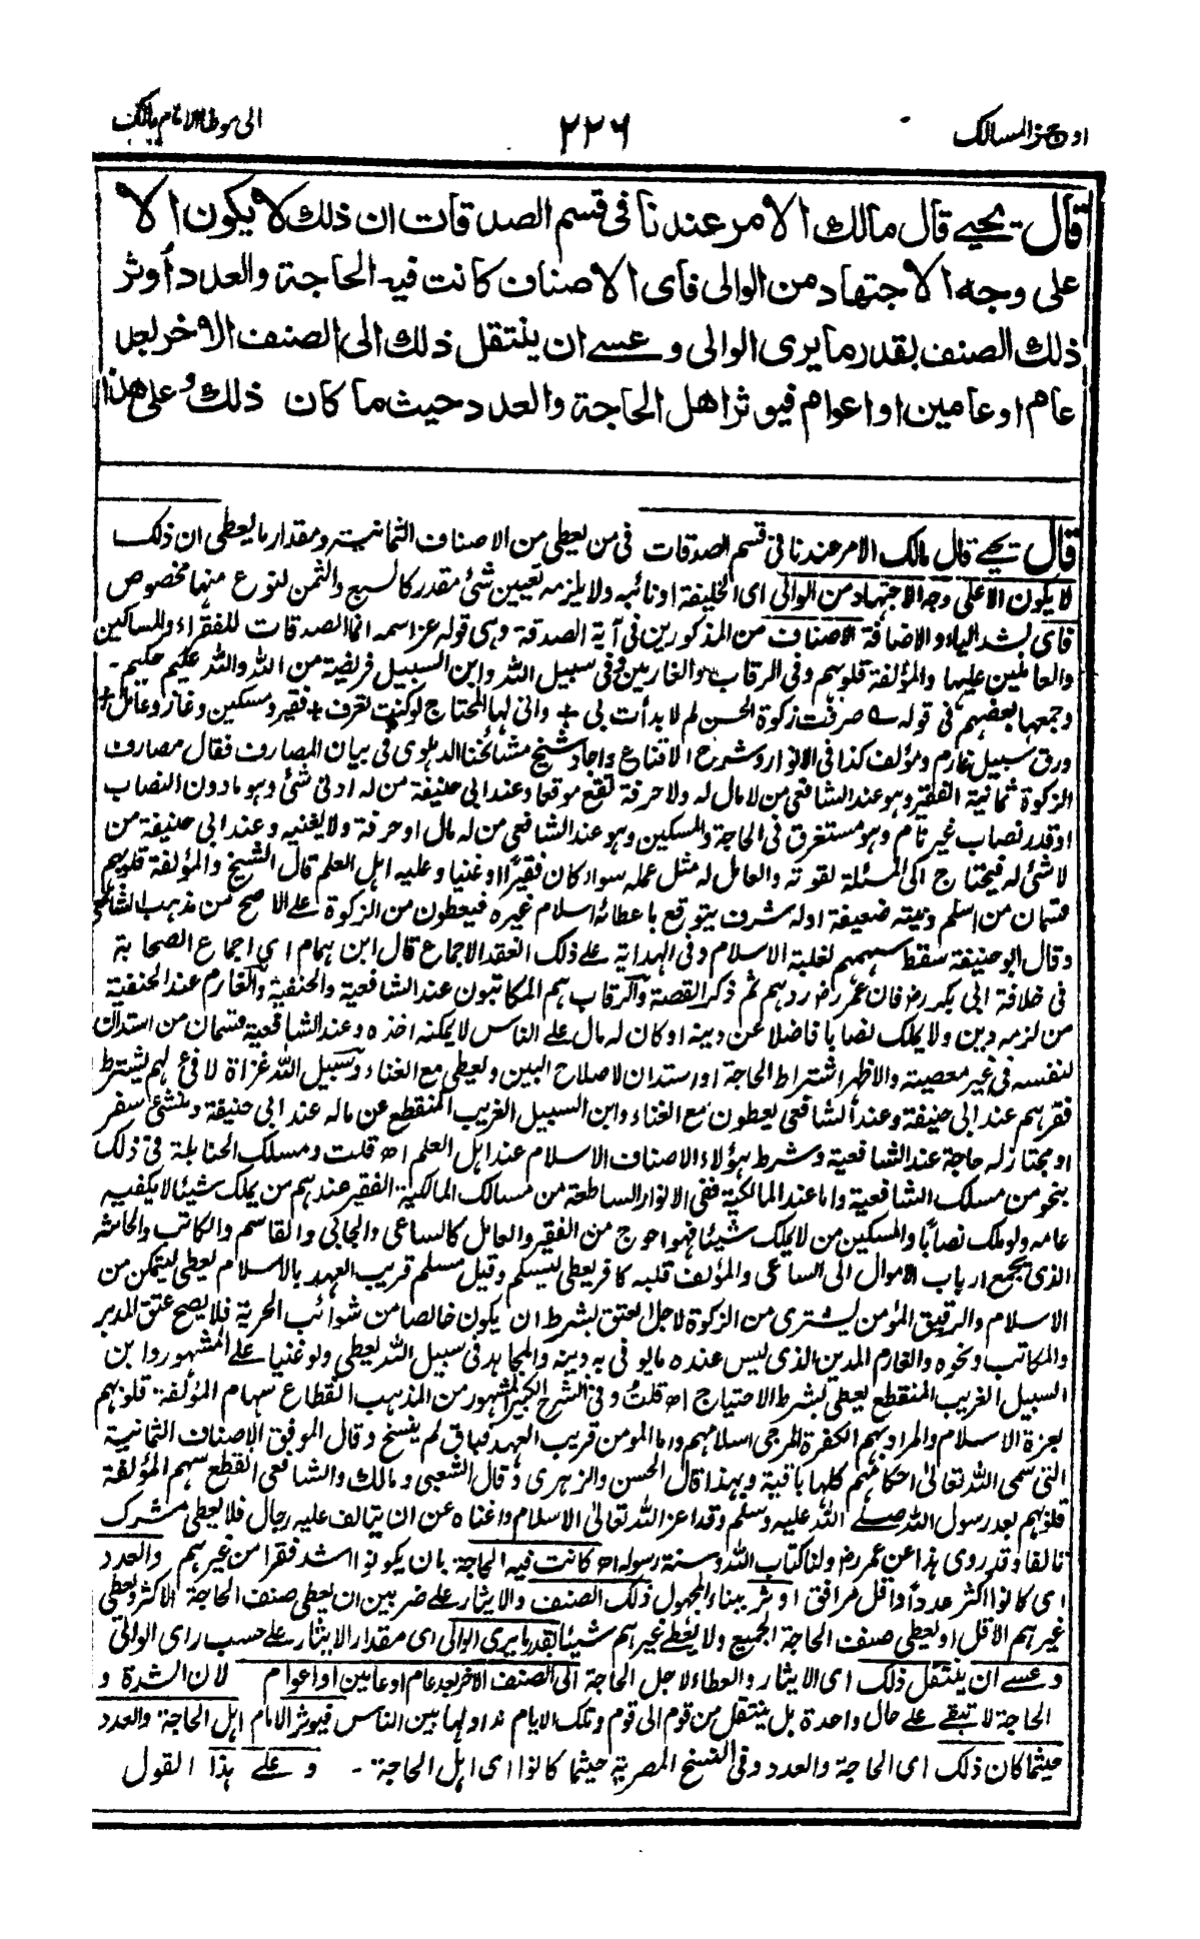 اوجز المسالك
٢٢٦
الى موطا الامام مالك
قال يحيے قال مالك الامر عندنا فى قسم الصدقات ان ذلك لا يكون الا
على وجه الاجتهاد من الوالى فاى الاصناف كانت فيه الحاجة والعدد أوثر
ذلك الصنف بقدر ما يرى الوالى وعسے ان ينتقل ذلك الى الصنف الاخر بعد
عام او عامين او اعوام فيوثر اهل الحاجة والعدد حيث ما كان ذلك وعلى هذا
قال يحيے قال مالك الامر عندنا فى قسم الصدقات فى من يعطى من الاصناف الثمانية ومقدار ما يعطى ان ذلك
لا يكون الا على وجه الاجتهاد من الوالى اى الخليفة او نائبه ولا يلزمه تعيين شئ مقدر كالسبع والثمن لنوع منها مخصوص
فاى بشد الياء والاضافة الاصناف من المذكورين فى آية الصدقة وهى قوله عز اسمه انما الصدقات للفقراء والمساكين
والعاملين عليها والمؤلفة قلوبهم وفى الرقاب والغارمين وفى سبيل الله وابن السبيل فريضة من الله والله عليم حكيم -
وجمعها بعضهم فى قوله ؎ صرفت زكوة الحسن لم لا بدأت بى + وانى لها المحتاج لو كنت تعرف + فقير ومسكين وغاز وعامل +
ورق سبيل غارم ومؤلف كذا فى الانوار وشرح الاقناع واجاد شيخ مشائخنا الدهلوى فى بيان المصارف فقال مصارف
الزكوة ثمانية الفقير وهو عند الشافعى من لا مال له ولا حرفة تقع موقعا وعند ابى حنيفة من له ادنى شئ وهو ما دون النصاب
او قدر نصاب غير تام وهو مستغرق فى الحاجة والمسكين وهو عند الشافعى من له مال او حرفة ولا يغنيه وعند ابى حنيفة من
لا شئ له فيحتاج الى المسئلة لقوته والعامل له مثل عمله سواء كان فقيرًا او غنيا وعليه اهل العلم قال الشيخ والمؤلفة قلوبهم
قسمان من اسلم ونيته ضعيفة اوله شرف يتوقع باعطائه اسلام غيره فيعطون من الزكوة على الاصح من مذهب الشافعى
وقال ابو حنيفة سقط سهمهم لغلبة الاسلام وفى الهداية علے ذلك انعقد الاجماع قال ابن همام اى اجماع الصحابة
فى خلافة ابى بكر رض فان عمر رض ردهم ثم ذكر القصة والرقاب هم المكاتبون عند الشافعية والحنفية والغارم عند الحنفية
من لزمه دين ولا يملك نصابا فاضلا عن دينه او كان له مال على الناس لا يمكنه اخذه وعند الشافعية قسمان من استدان
لنفسه فى غير معصية والاظهر اشتراط الحاجة او استدان لاصلاح البين ويعطى مع الغناء وسبيل الله غزاة لا فئ لهم يشترط
فقرهم عند ابى حنيفة وعند الشافعى يعطون مع الغناء وابن السبيل الغريب المنقطع عن ماله عند ابى حنيفة ومنشئ سفر
او مجتاز له حاجة عند الشافعية وشرط هؤلاء الاصناف الاسلام عند اهل العلم اه قلت ومسلك الحنابلة فى ذلك
بنحو من مسلك الشافعية واما عند المالكية ففى الانوار الساطعة من مسالك المالكية الفقير عندهم من يملك شيئا لا يكفيه
عامه ولو ملك نصابًا والمسكين من لا يملك شيئا فهو احوج من الفقير والعامل كالساعى والجابى والقاسم والكاتب والحاشر
الذى يجمع ارباب الاموال الى الساعى والمؤلف قلبه كافر يعطى ليسلم وقيل مسلم قريب العهد بالاسلام يعطى ليتمكن من
الاسلام والرقيق المؤمن يشترى من الزكوة لاجل يعتق بشرط ان يكون خالصا من شوائب الحرية فلا يصح عتق المدبر
والمكاتب ونحوه والغارم المدين الذى ليس عنده ما يوفى به دينه والمجاهد فى سبيل الله يعطى ولو غنيا على المشهور وابن
السبيل الغريب المنقطع يعطى بشرط الاحتياج اه قلت وفى الشرح الكبير المشهور من المذهب انقطاع سهام المؤلفة قلوبهم
بعزة الاسلام والمراد بهم الكفرة المرجى اسلامهم واما المومن قريب العهد فباق لم ينسخ وقال الموفق الاصناف الثمانية
التى سمى الله تعالى احكامهم كلها باقية وبهذا قال الحسن والزهرى وقال الشعبى ومالك والشافعى انقطع سهم المؤلفة
قلوبهم بعد رسول الله صلے الله عليه وسلم وقد اعز الله تعالى الاسلام واغناه عن ان يتالف عليه رجال فلا يعطى مشرك
تالفا وقد روى هذا عن عمر رض ولنا كتاب الله وسنة رسوله اه كانت فيه الحاجة بان يكونوا اشد فقرا من غيرهم والعدد
اى كانوا اكثر عددًا واقل مرافق اوثر ببناء المجهول ذلك الصنف والايثار علے ضربين ان يعطى صنف الحاجة الاكثر ويعطى
غيرهم الاقل او يعطى صنف الحاجة الجميع ولا يعطے غيرهم شيئا بقدر ما يرى الوالى اى مقدار الايثار علے حسب راى الوالى
وعسے ان ينتقل ذلك اى الايثار والعطاء لاجل الحاجة الى الصنف الآخر بعد عام او عامين او اعوام لان الشدة و
الحاجة لا تبقے علے حال واحدة بل ينتقل من قوم الى قوم وتلك الايام نداولها بين الناس فيوثر الامام اهل الحاجة والعدد
حيثما كان ذلك اى الحاجة والعدد وفى النسخ المصرية حيثما كانوا اى اهل الحاجة - وعلے هذا القول